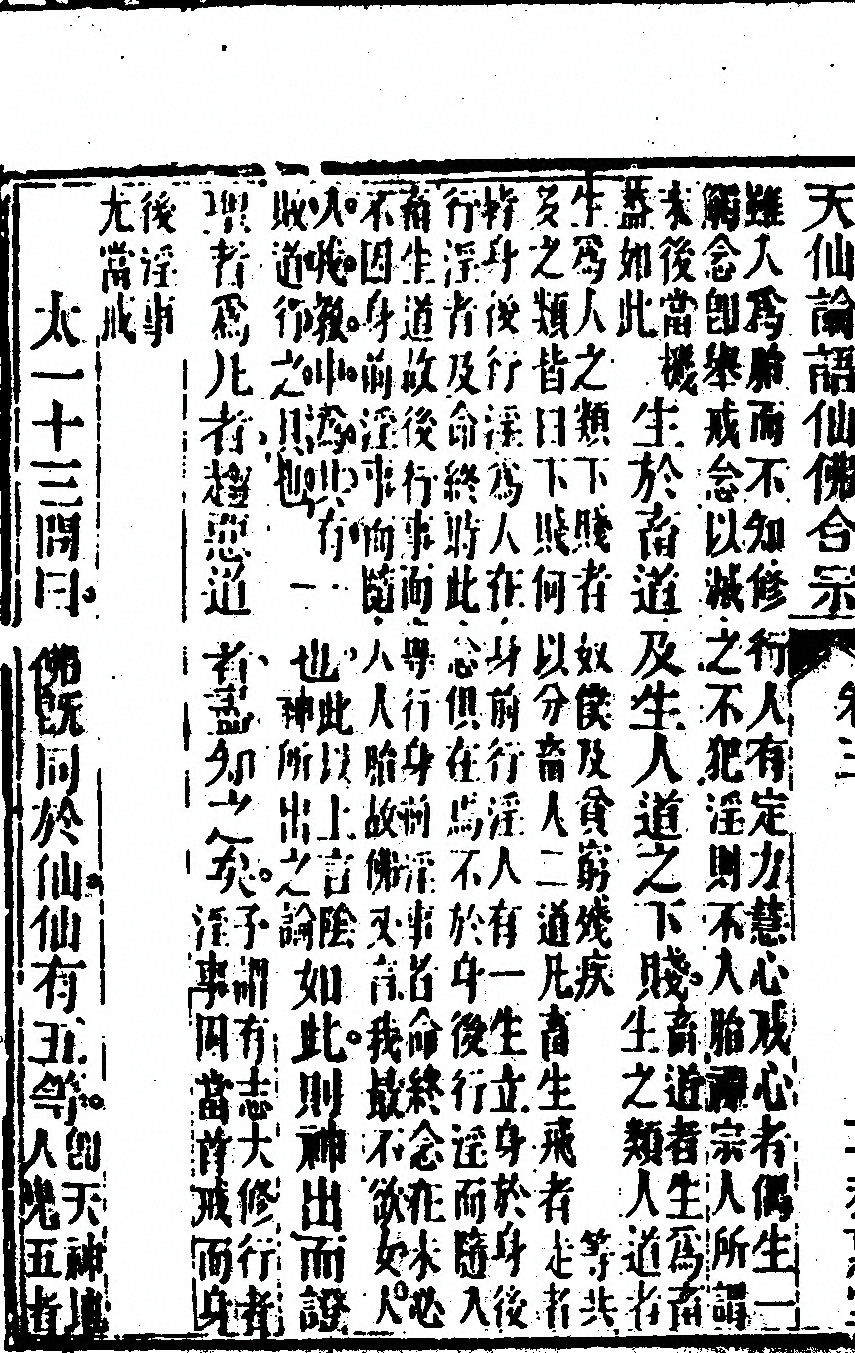 天仙論語仙佛合宗 卷三
雖人為胎而不知修行人有定力慧心戒心者偶生一
觸念卽舉戒念以滅之不犯淫則不入胎禪宗人所謂
末後當機
葢如此
生於畜道及生人道之下賤。
畜道者生為畜
生之類人道者
生為人之類下賤者奴僕及貧窮殘疾等共
多之類皆曰下賤何以分畜人二道凡畜生飛者走者
皆身後行淫為人在身前行淫人有一生立身於身後
行淫者及命終時此念俱在焉不於身後行淫而隨入
畜生道故後行事而專行身前淫事者命終念在未必
不因身前淫事而隨人人胎故佛又言我最不欲女人
入我教中為其有
敗道行之具也一也
此以上言陰
神所出之論
如此。則神出而證
聖者為凡者趨惡道者盡知之矣。
予謂有志大修行者
淫事因當首戒而身
後淫事
尤當戒
太一十三問曰。佛旣同於仙。仙有五等。
卽天神地
人鬼五者